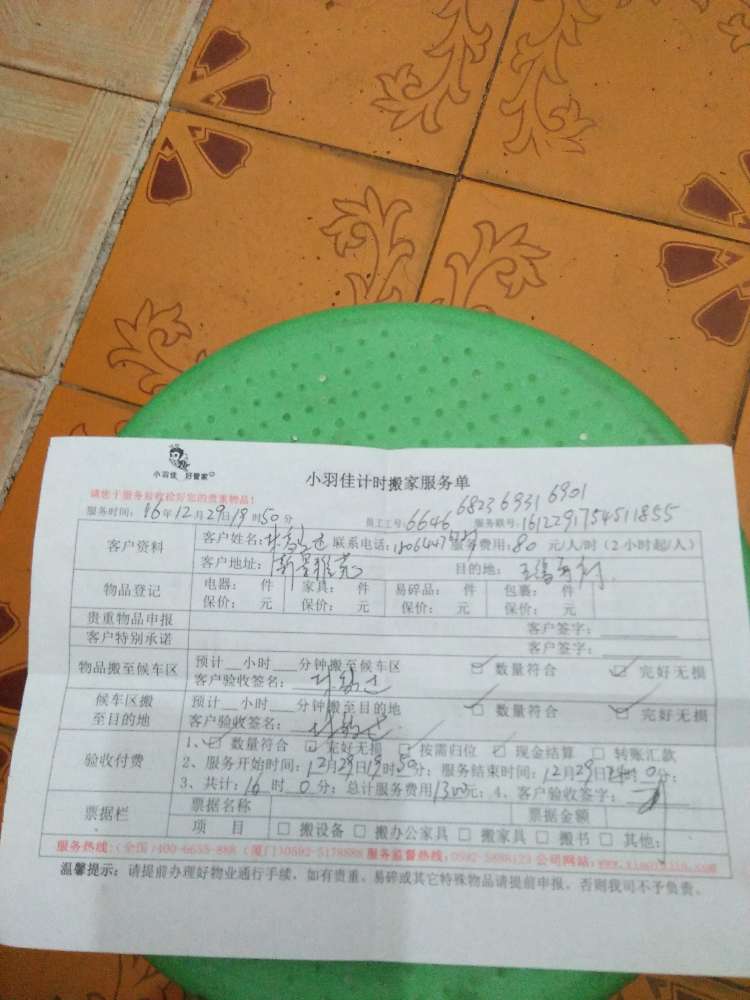 小羽佳 好管家
小羽佳计时搬家服务单
请您于服务验收检好您的贵重物品!
6823 6931 6901
服务时间: 16年12月29日19时50分 员工工号: 6646 服务联号: 1612291754511855
客户资料 客户姓名: 联系电话: 服务费用: 80 元/人/时 (2小时起/人)
客户地址: 目的地:
物品登记 电器: 件 家具: 件 易碎品: 件 包裹: 件
保价: 元 保价: 元 保价: 元 保价: 元
贵重物品申报 客户签字:
客户特别承诺 客户签字:
物品搬至候车区 预计__小时___分钟搬至候车区 ☑ 数量符合 ☑ 完好无损
客户验收签名:
候车区搬至目的地 预计__小时___分钟搬至目的地 ☑ 数量符合 ☑ 完好无损
客户验收签名:
验收付费 1、☑ 数量符合 ☑ 完好无损 ☑ 按需归位 ☑ 现金结算 □ 转账汇款
2、服务开始时间: 12月29日19时50分; 服务结束时间: 12月29日 时0分;
3、共计: 16时0分; 总计服务费用1300元; 4、客户验收签字:
票据栏 票据名称 票据金额
项 目 □ 搬设备 □ 搬办公家具 □ 搬家具 □ 搬书 □ 其他:
服务热线: (全国)400-6655-888 (厦门)0592-5178888 服务监督热线: 0592-5898123 公司网站:
温馨提示: 请提前办理好物业通行手续, 如有贵重、易碎或其它特殊物品请提前申报, 否则我司不予负责。